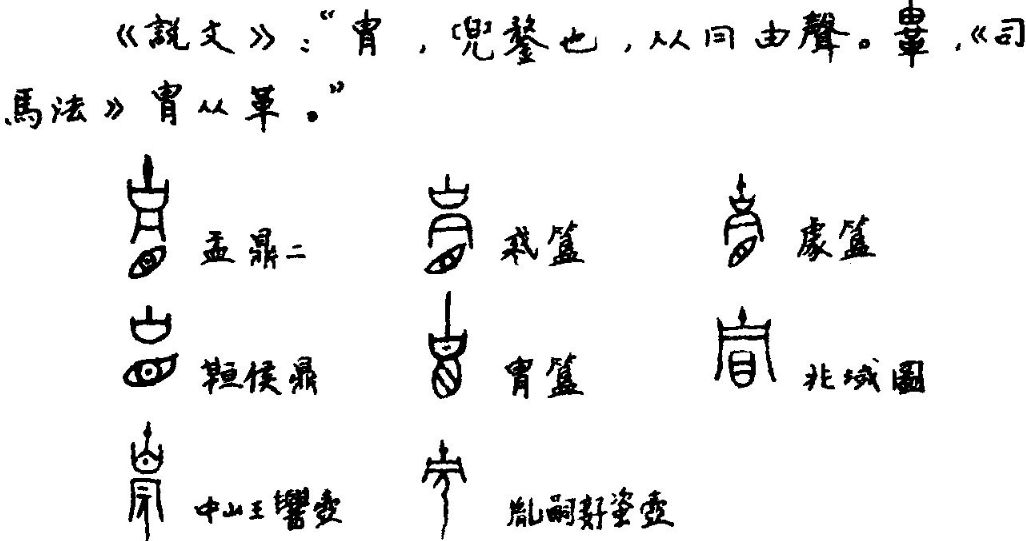 《説文》：“冑，兜鍪也，从冃由聲。𩊄，《司
馬法》冑从革。”
盂鼎二 簋 簋
侯鼎 冑簋 兆域圖
中山王壺 胤嗣壺